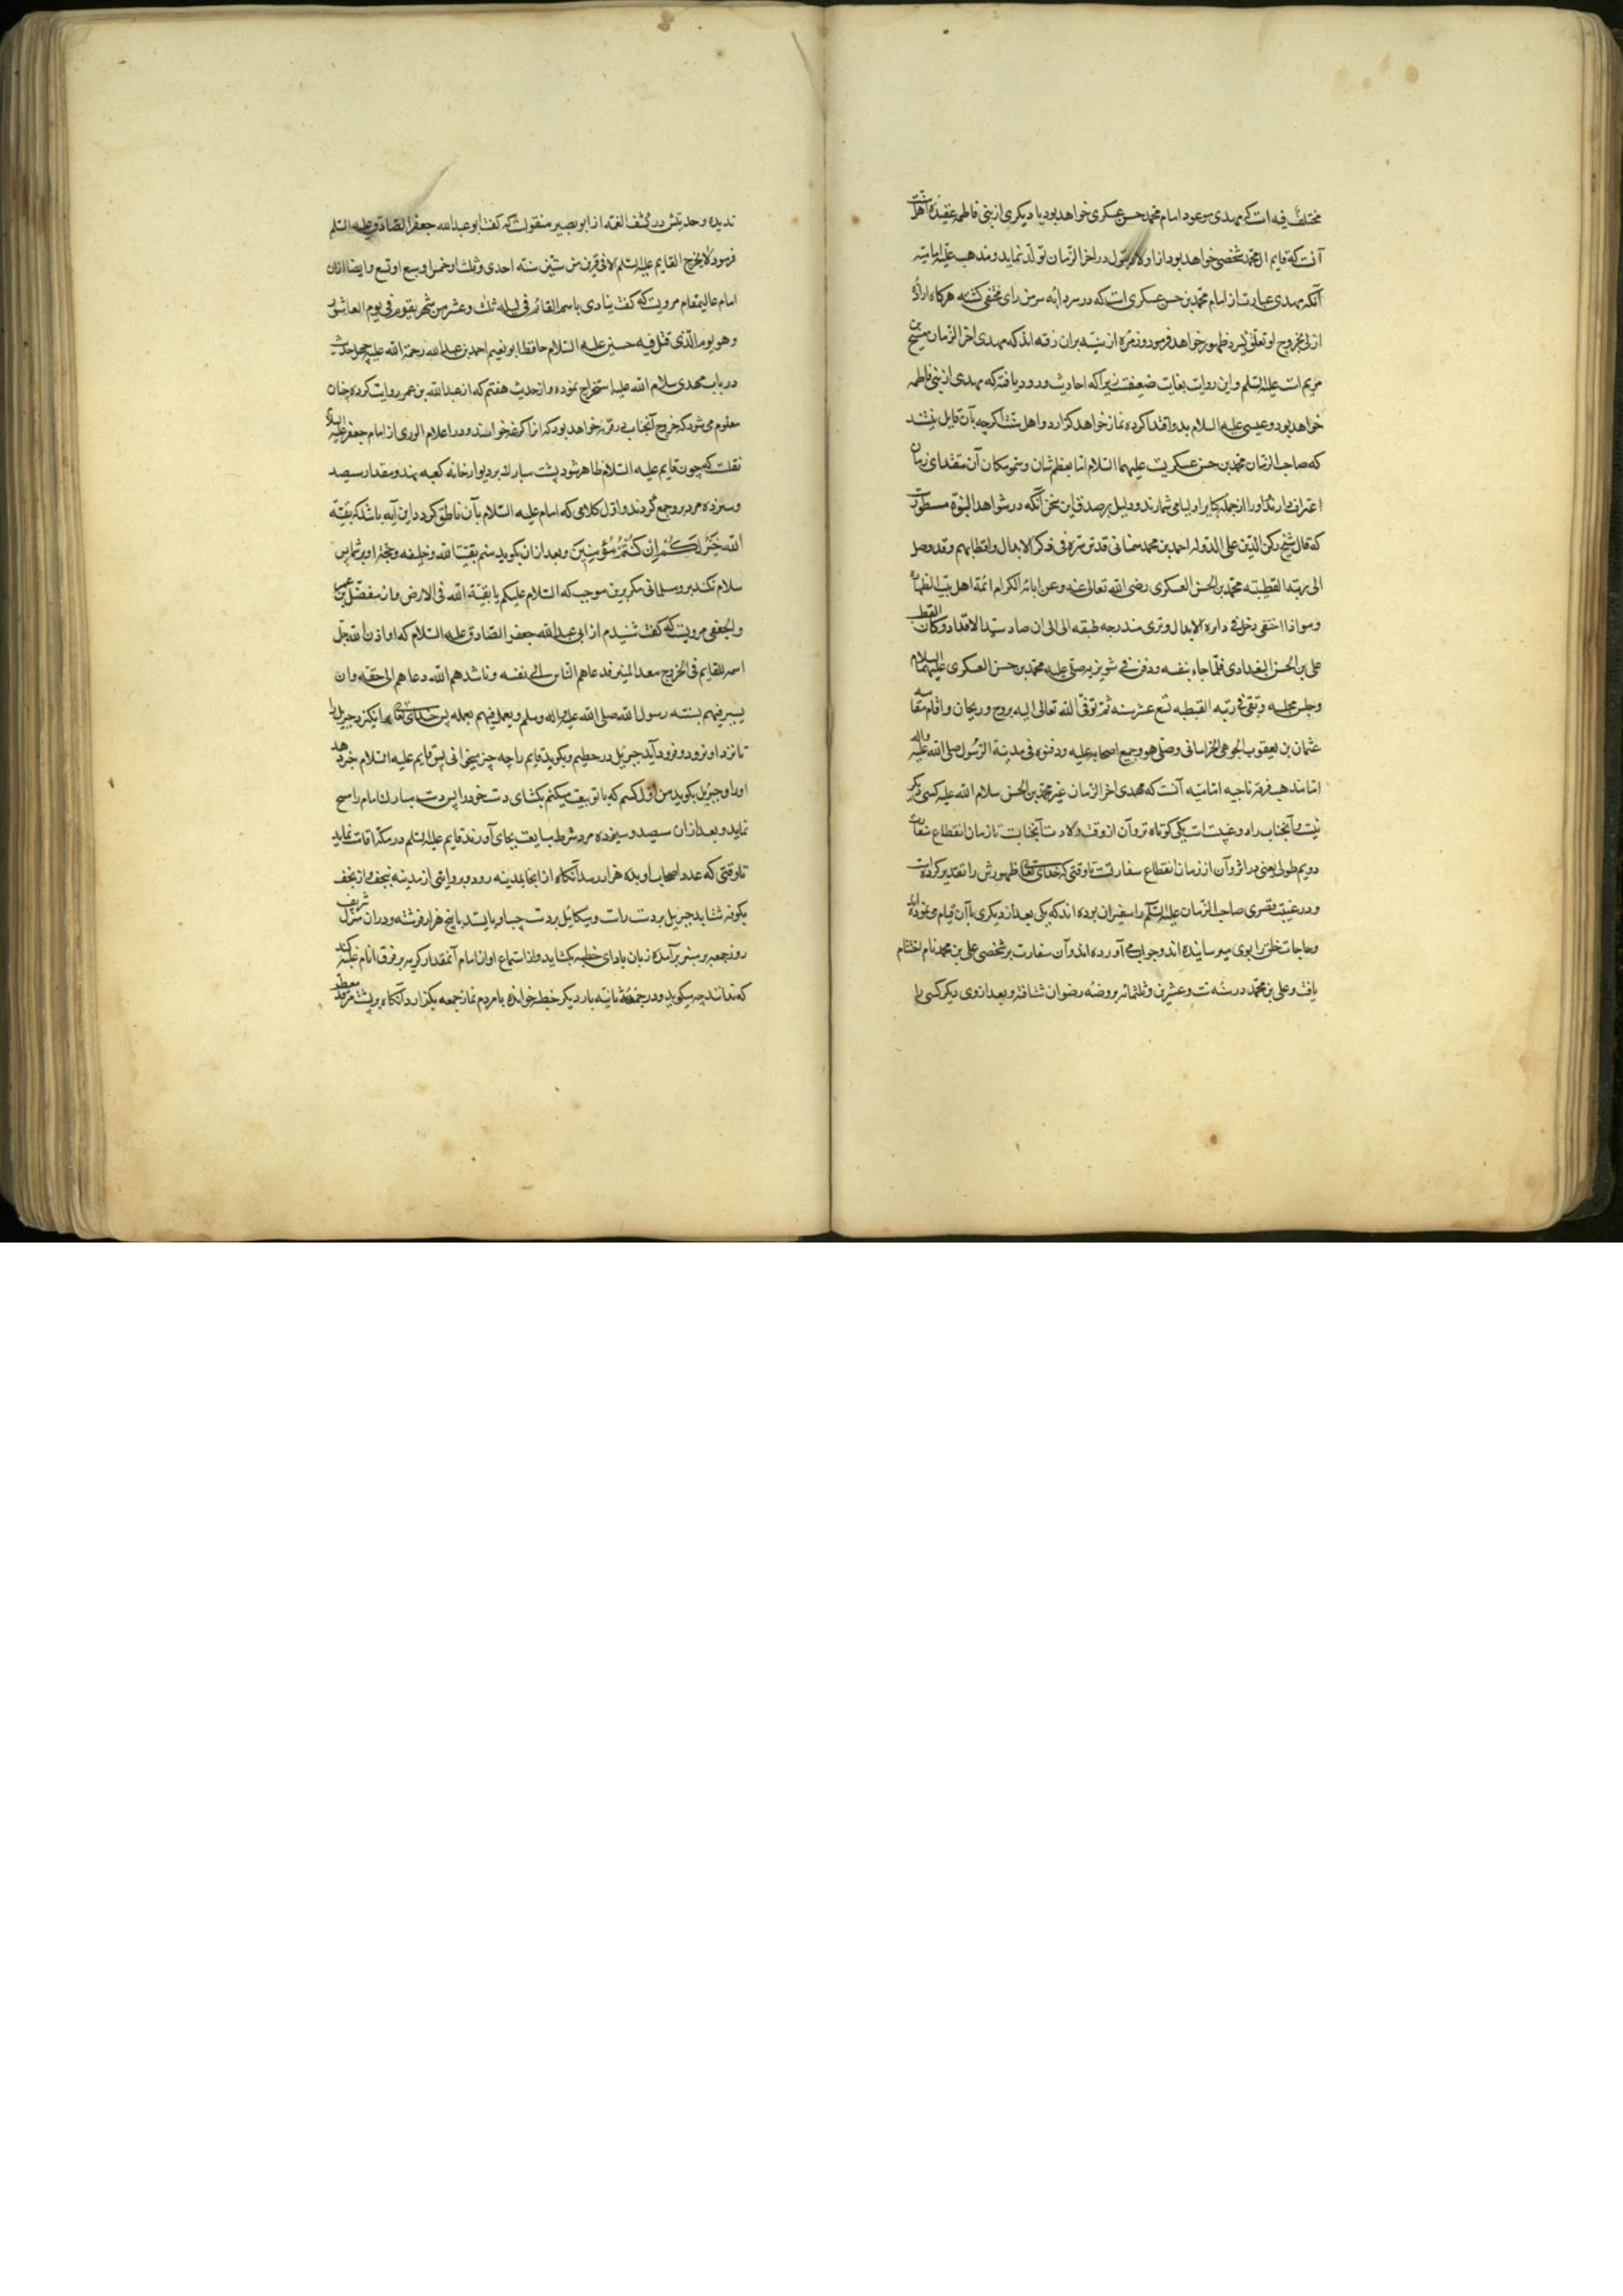 مختلف فیه است که مهدی موعود امام محمد حسن عسکری خواهد بود یا دیکری از بنی فاطمه عقیده اهل سنت
آنست که قایم ال محمد شخصی خواهد بود از اولاد بتول در اخر الزمان تولد نماید و مذهب علیه امامیه
آنکه مهدی عبارت از امام محمد بن حسن عسکری است که در سردابه سر من رای مختفی کشته هرکاه اراده
ازلی بخروج او تعلق کیرد ظهور خواهد فرمود و زمره از سنیه بران رفته اند که مهدی اخر الزمان مسیح بن
مریم است علیه السلم و این روایت بغایت ضعیفست زیرا که احادیث ورود یافته که مهدی از بنی فاطمه
خواهد بود و عیسی علیه السلام بدو اقتدا کرده نماز خواهد کزارد و اهل سنت اکرچه بآن قایل نیستند
که صاحب الزمان محمد بن حسن عسکریست علیهما السلام اما بعظم شان و سمو مکان آن مقتدای زمان
اعتراف دارند و او را از جمله کابر اولیا می شمارند و دلیل بر صدق این سخن آنکه در شواهد النبوة مسطورست
که قال شیخ رکن الدین علی الدوله احمد بن محمد سمنانی قدس سره فی ذکر الابدال و اقطابهم و قد وصل
الی رتبه القطبیه محمد بن الحسن العسکری رضی الله تعالی عنه و عن ابائه الکرام ائمة اهل بیت الطهاره
وهو اذا اختفی دخل فی دایره الابدال و تری مندرجه طبقه الی الی ان صار سید الافداد و کان القطب
علی بن الحسن البغدادی فلما جاء بنفسه و دفن فی شونیزیه صلی علیه محمد بن حسن العسکری علیهما السلام
وجلس مجلسه و بقی فی رتبه القطبیه تسع عشر سنه ثم توفی الله تعالی الیه بروح و ریحان و اقام مقامه
عثمان بن یعقوب الجوهی الخراسانی وصلی هو و جمیع اصحابه علیه و دفنوه فی مدینة الرسول صلی الله علیه واله
اما مذهب فرقه ناجیه امامیه آنست که مهدی اخر الزمان غیر محمد بن الحسن سلام الله علیه کسی دیکر
نیست و آنجناب را دو غیبت است یکی کوتاه تر و آن از وقت ولادت آنجنابست تا زمان انقطاع سفارت
دویم طولی یعنی دراز تر و آن از زمان انقطاع سفارتست تا وقتی که خدای تعالی ظهورش را تقدیر کرده است
و در غیبت قصری صاحب الزمان علیه السلم را سفیران بوده اند که یکی بعد از دیکری بآن قیام می نموده اند
و حاجات خلق را بوی میرسانیده اند و جواب می آورده اند و آن سفارت بر شخصی علی بن محمد نام اختتام
یافت و علی بن محمد در سنه ست و عشرین و ثلثمائه بروضه رضوان شتافته و بعد از وی دیکر کسی را
ندیده و حدیثش در کشف الغمه از ابو بصیر منقولست که کفت ابو عبدالله جعفر الصادق علیه السلم
فرمود لا یخرج القایم علیه السلم الا فی قرن من ستین سنه احدی و ثلث او خمس او سبع او تسع و ایضا از ان
امام عالیمقام مرویست که کفت ینادی باسم القائم فی لیله ثلث و عشر من شهر یقوم فی یوم العاشورا
وهو یوم الذی قتل فیه حسین علیه السلام حافظ ابو نعیم احمد بن عبدالله رحمة الله علیه چهل حدیث
در باب مهدی سلام الله علیه استخراج نموده و از حدیث هفتم که از عبدالله بن عمر روایت کرده چنان
معلوم می شود که خروج آنجناب در قریه خواهد بود که انرا کرعه خوانند و در اعلام الوری از امام جعفر علیه السلام
نقلست که چون قایم علیه السلام ظاهر شود پشت مبارک بر دیوار خانه کعبه نهد و مقدار سیصد
و سیزده مرد برو جمع کردند و اول کلامی که امام علیه السلام بآن ناطق کردد این آیه باشد که بقیة
الله خیر لکم ان کنتم مؤمنین و بعد ازان بکوید منم بقیت الله و خلیفه و حجة او بر شما پس
سلام نکند برو مسلمانی مکر برین موجب که السلام علیکم یا بقیة الله فی الارض و از مفضل بن عمر
و الجعفی مرویست که کفت شنیدم از ابی عبدالله جعفر الصادق علیه السلام که او اذن الله جل
اسمه للقایم فی الخروج صعد المنبر فدعاهم الناس الی نفسه و ناشدهم الله و دعاهم الی حقه و ان
یسیر فیهم بسنته رسول الله صلی الله علیه واله وسلم و یعمل فیهم بعمله پس خدای تعالی برانکیزد جبریل را
تا نزد او رود و فرود آید جبریل در حطیم و بکوید قایم را چه چیز میخوانی پس قایم علیه السلام خبر دهد
او را و جبریل بکوید من اول کسم که با تو بیعت میکنم بکشای دست خود را پس دست مبارک امام را مسح
نماید و بعد ازان سیصد و سیزده مرد شرط مبایعت بجای آورند قایم علیه السلم در مکه اقامت نماید
تا وقتی که عدد اصحاب او بده هزار رسد آنکاه از انجا بمدینه رود و بروایتی از مدینه بنجف و از نجف
بکوفه شتابد جبریل بر دست راست و میکائیل بر دست چپ او بایستد با پنج هزار فرشته و دران منزل شریف
روز جمعه بر منبر برآمده زبان بادای خطبه بکشاید و از استماع او ان امام آنمقدار کریه بر فرق انام غلبه کند
که ندانند چه میکوید و در جمعه ثانیه بار دیکر خطبه خوانده با مردم نماز جمعه بکزارد آنکاه بر پشت مرقد معطر